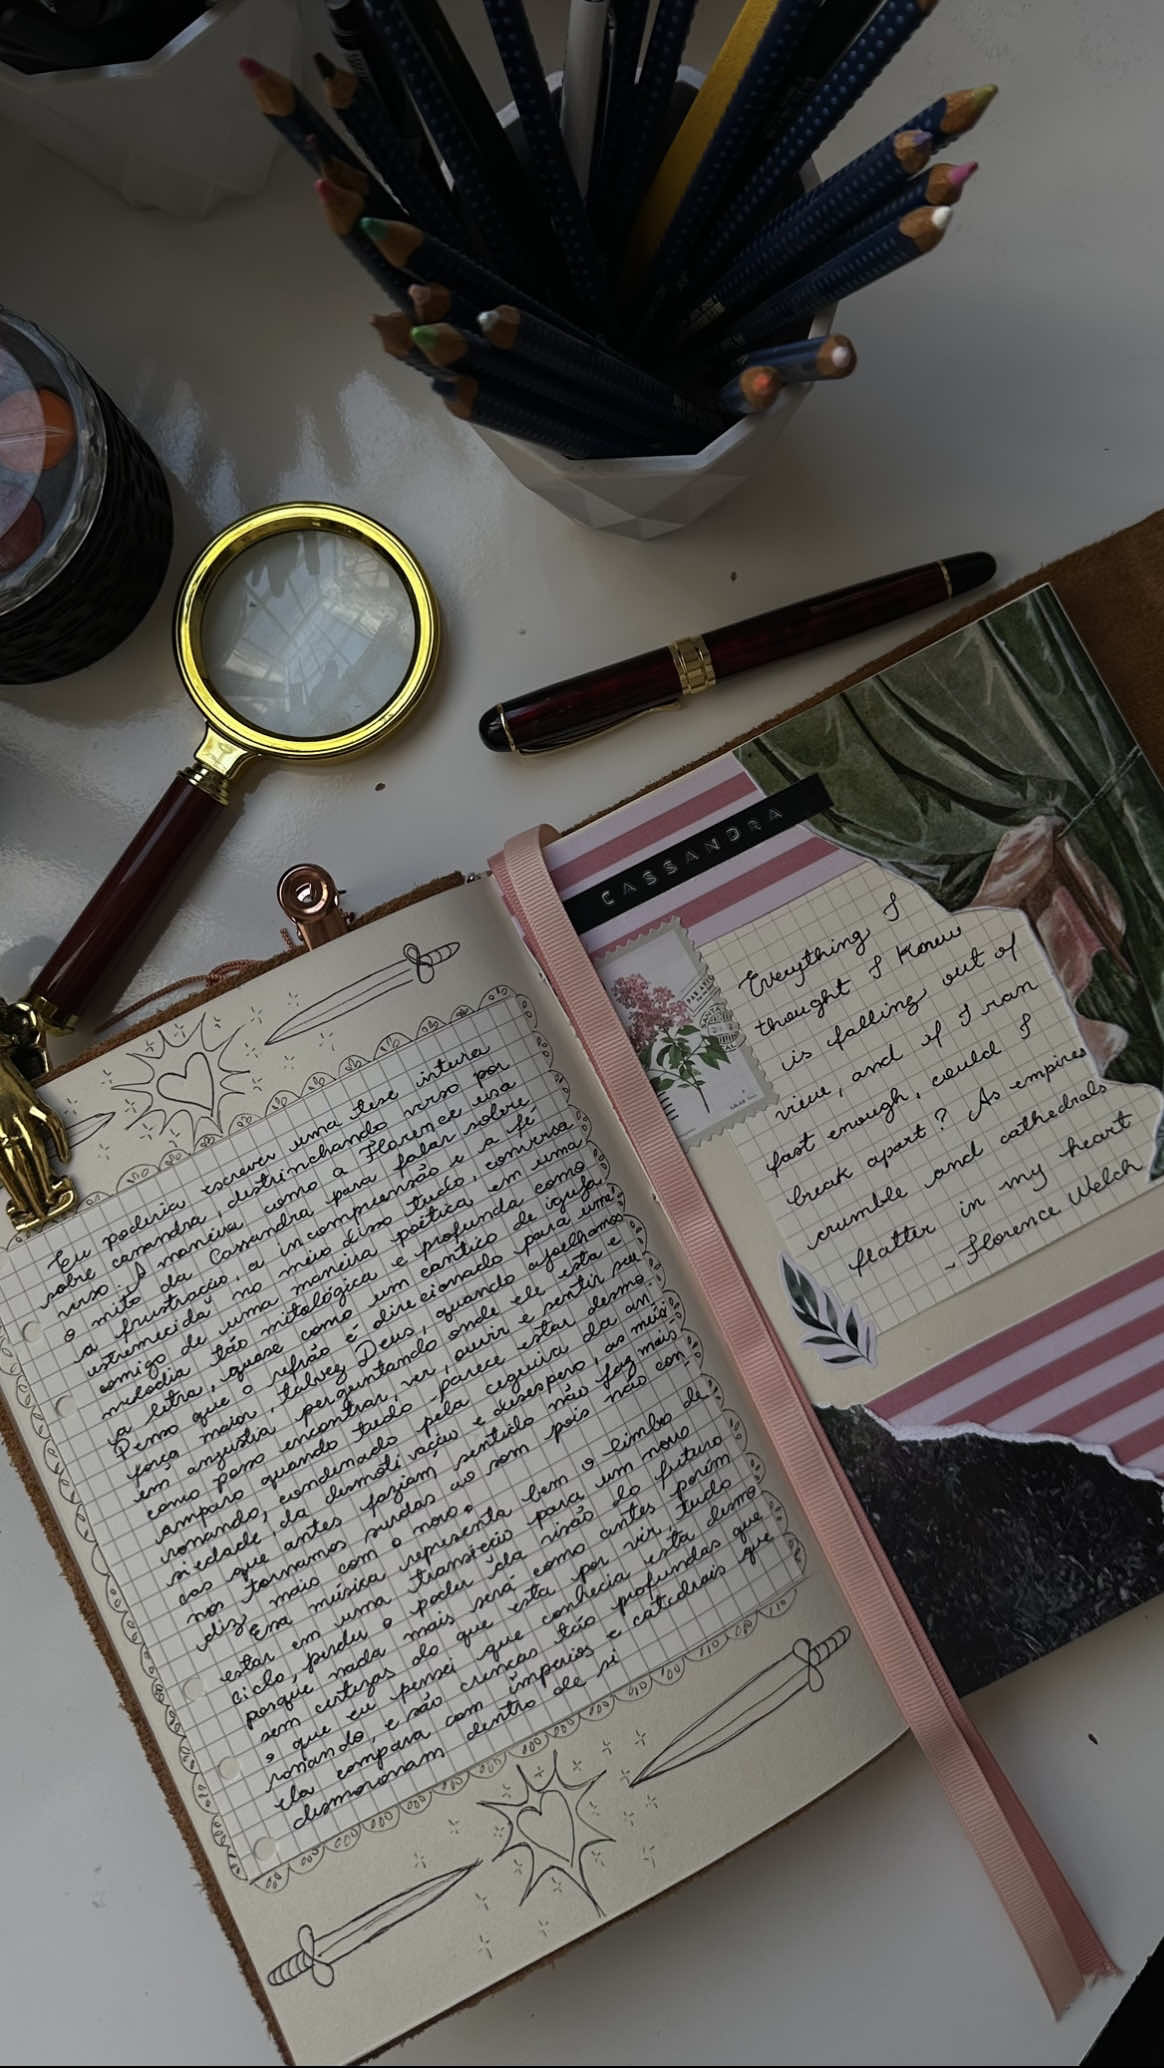 Eu poderia escrever uma tese inteira
sobre cassandra, destrinchando verso por
verso. A maneira como a Florence usa
o mito da Cassandra para falar sobre
a frustração, a incompreensão e a fé
estremecida no meio disso tudo, conversa
comigo de uma maneira poética em uma
melodia tão mitológica e profunda como
a letra, quase como um cantico de igreja.
Penso que o refrão é direcionado para uma
força maior, talvez Deus, quando ajoelhamos
em angustia perguntando onde ele esta e
como posso encontrar, ver, ouvir e sentir seu
amparo quando tudo parece estar desmo-
ronando, condenado pela cegueira da an-
siedade, da desmotivação e desespero, as músi-
cas que antes faziam sentido não faz mais
nos tornamos surdas ao som pois não con-
diz mais com o novo.
Essa música representa bem o limbo de
estar em uma transição para um novo
ciclo, perder o poder da visão do futuro
porque nada mais será como antes porém
sem certezas do que esta por vir, tudo
o que eu pensei que conhecia esta desmo
ronando, e são crenças tão profundas que
ela compara com imperios e catedrais que
desmoronam dentro de si
CASSANDRA
Everything I
thought I knew
is falling out of
view, and if I ran
fast enough, could I
break apart? As empires
crumble and cathedrals
flatter in my heart
~ Florence Welch